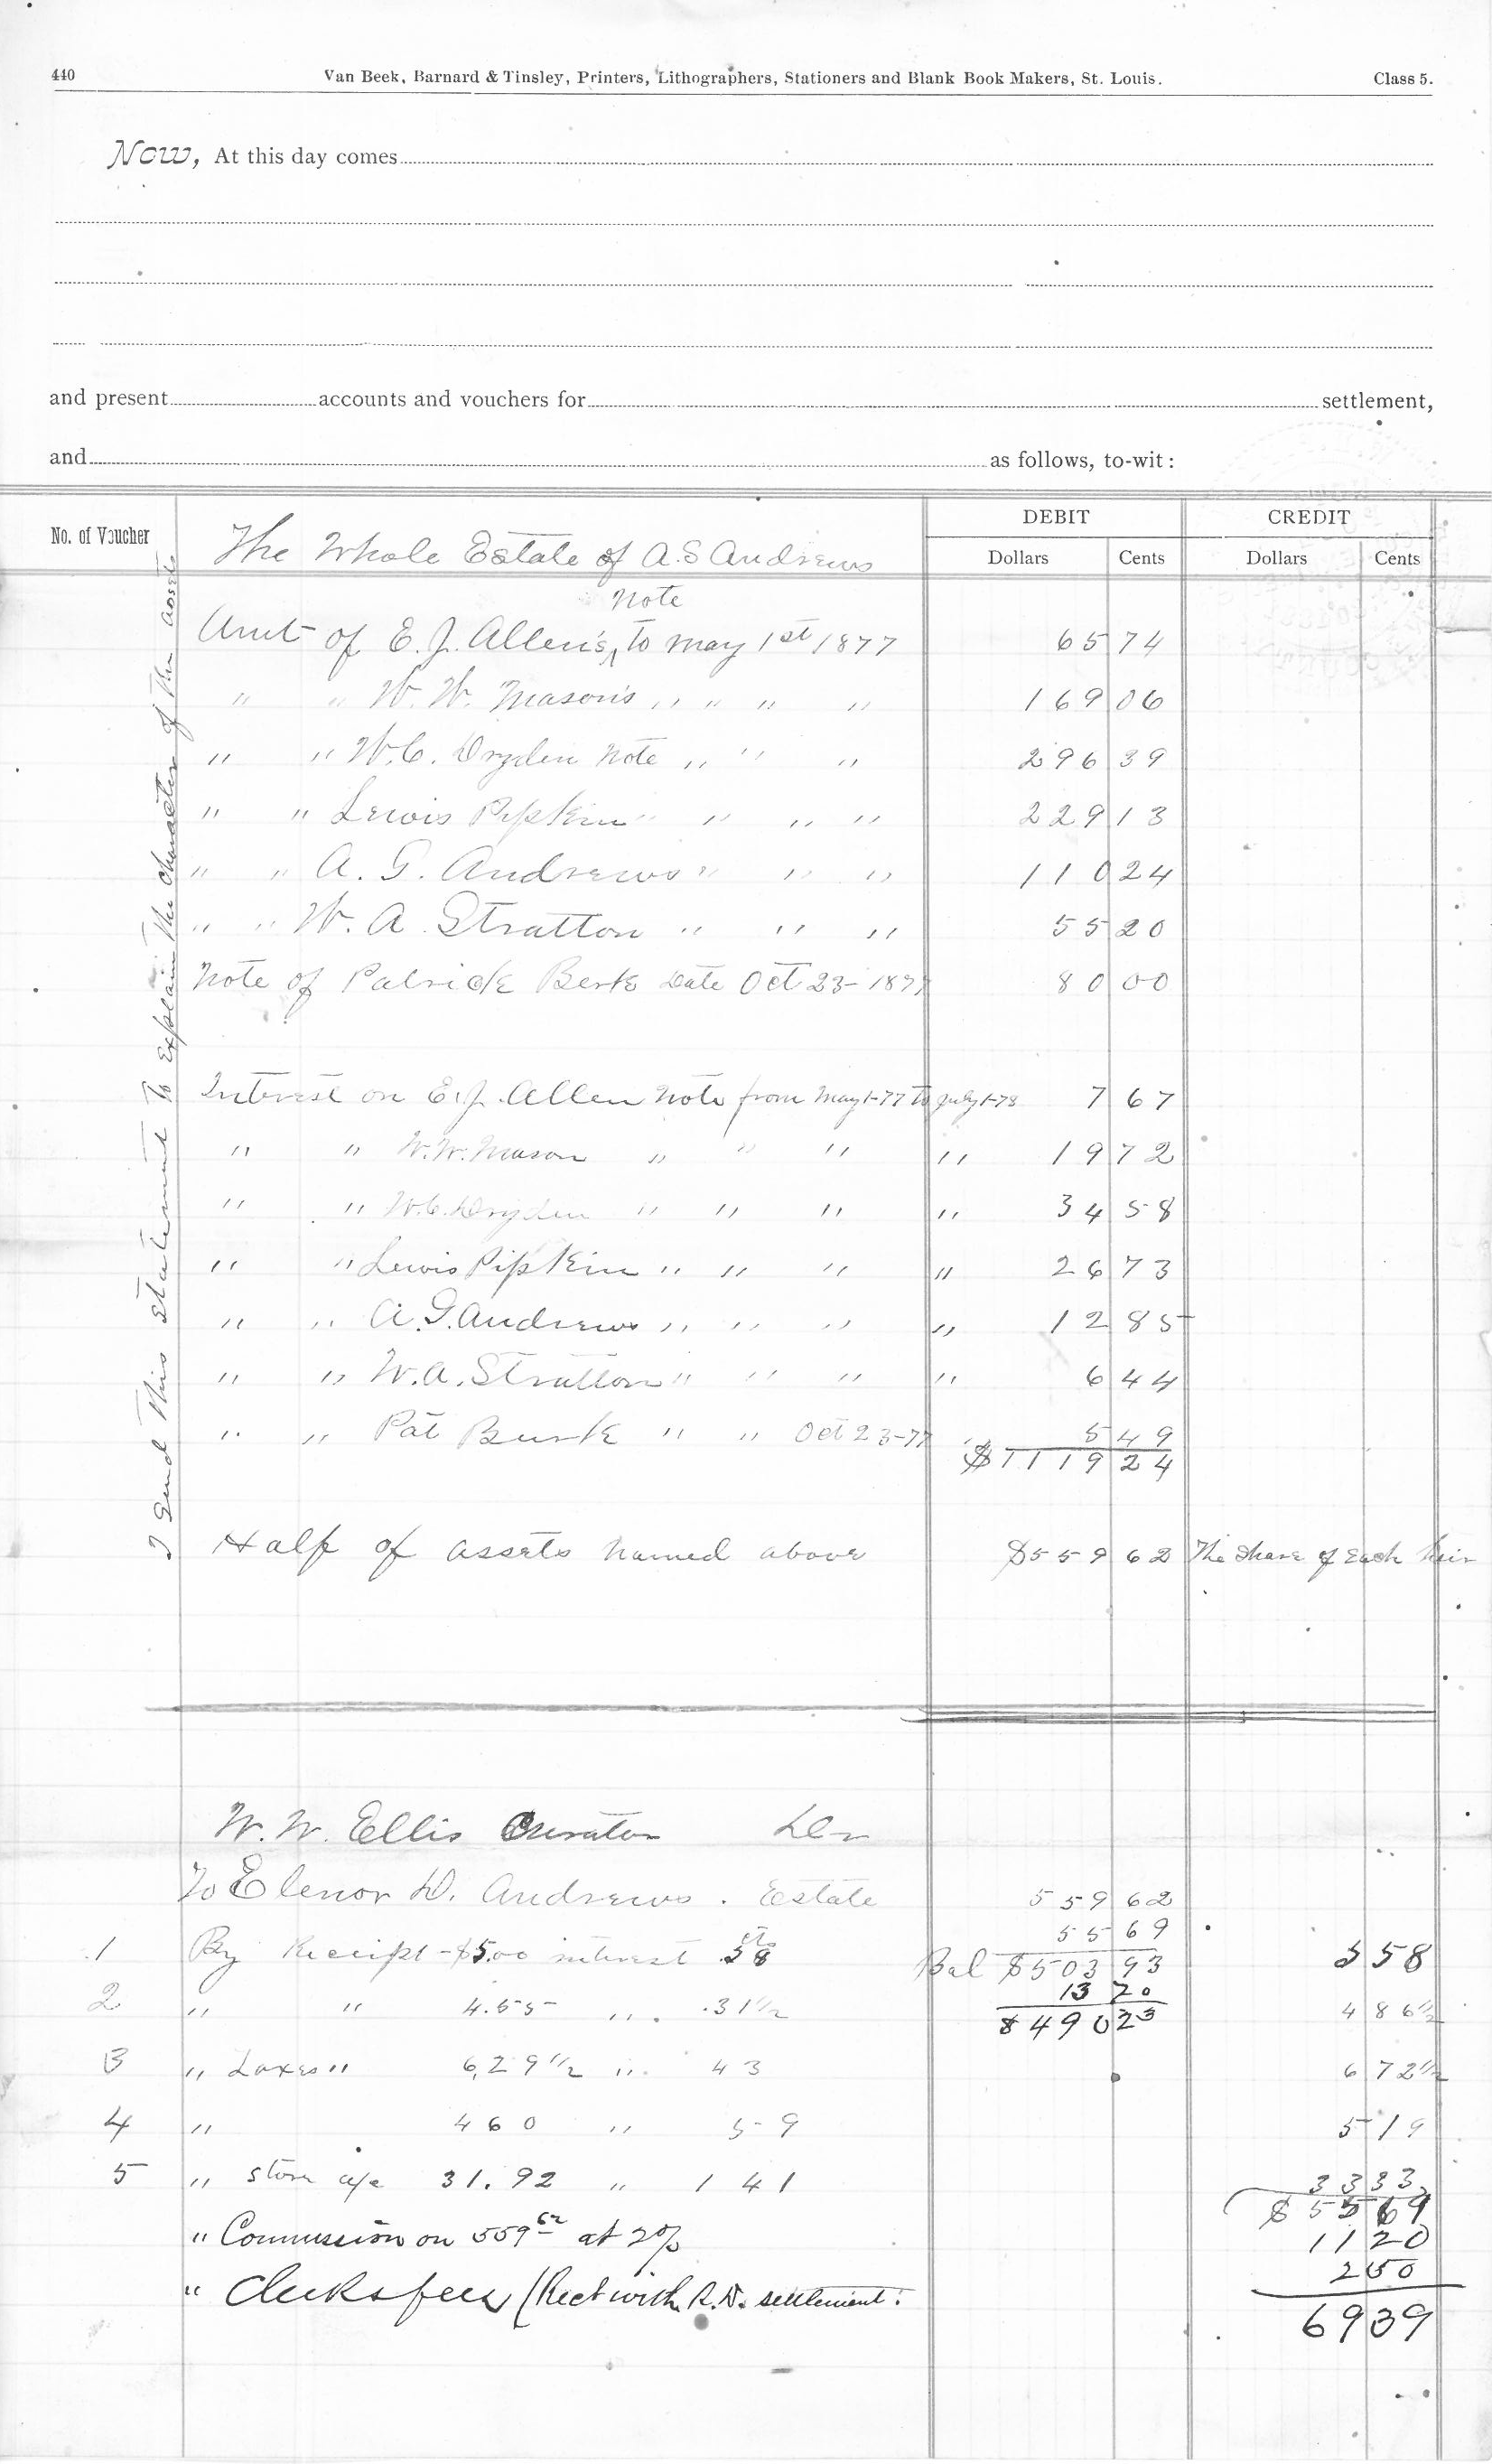 440 Van Beek, Barnard & Tinsley, Printers, Lithographers, Stationers and Blank Book Makers, St. Louis. Class 5.
Now, At this day comes
and present accounts and vouchers for settlement,
and as follows, to-wit:
No. of Voucher DEBIT CREDIT
The Whole Estate of A.S Andrews Dollars Cents Dollars Cents
Note
Amt of E. J. Allen's, To May 1st 1877 65 74
" " W. W. Mason's " " " " 169 06
" " W.C. Dryden Note " " " 296 39
" " Lewis Pipkin " " " " 229 13
" " A. G. Andrews " " " 110 24
" " W. A. Stratton " " " 55 20
Note of Patrick Berk Date Oct 23-1877 80 00
Interest on E.J. Allen Note from May 1-77 To July 1-78 7 67
" " W.W. Mason " " " " 19 72
" " W.C. Dryden " " " " 34 58
" " Lewis Pipkin " " " " 26 73
" " A.G. Andrews " " " " 12 85
" " W.A. Stratton " " " " 6 44
" " Pat Burk " " Oct 23-77 " 5 49
$1119 24
Half of assets named above $559 62 The share of Each heir
I send This statement To Explain The Character of The assets
W. W. Ellis Curator Dr
To Elenor D. Andrews. Estate 559 62
55 69
1 By Receipt - $5.00 interest .58 cts Bal $503 93 5 58
13 20
2 " " 4.55 " .31 1/2 $490 23 4 86 1/2
3 " Taxes " 6,29 1/2 " 43 6 72 1/2
4 " 460 " 59 5 19
5 " Store a/c 31.92 " 1 41 33 33
$55 69
" Commission on 559 62 at 2% 11 20
" Clerks fees (Rect with R.D. settlement. 2 50
69 39